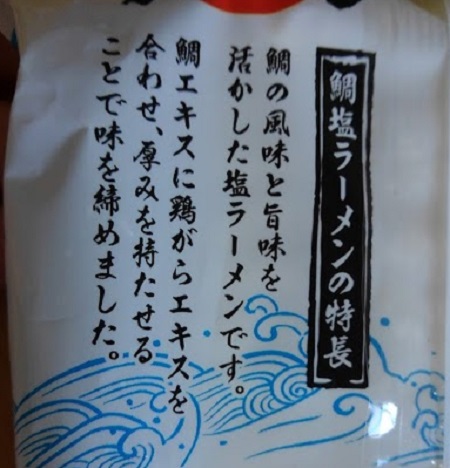 鯛塩ラーメンの特長
鯛の風味と旨味を
活かした塩ラーメンです。
鯛エキスに鶏がらエキスを
合わせ、厚みを持たせる
ことで味を締めました。